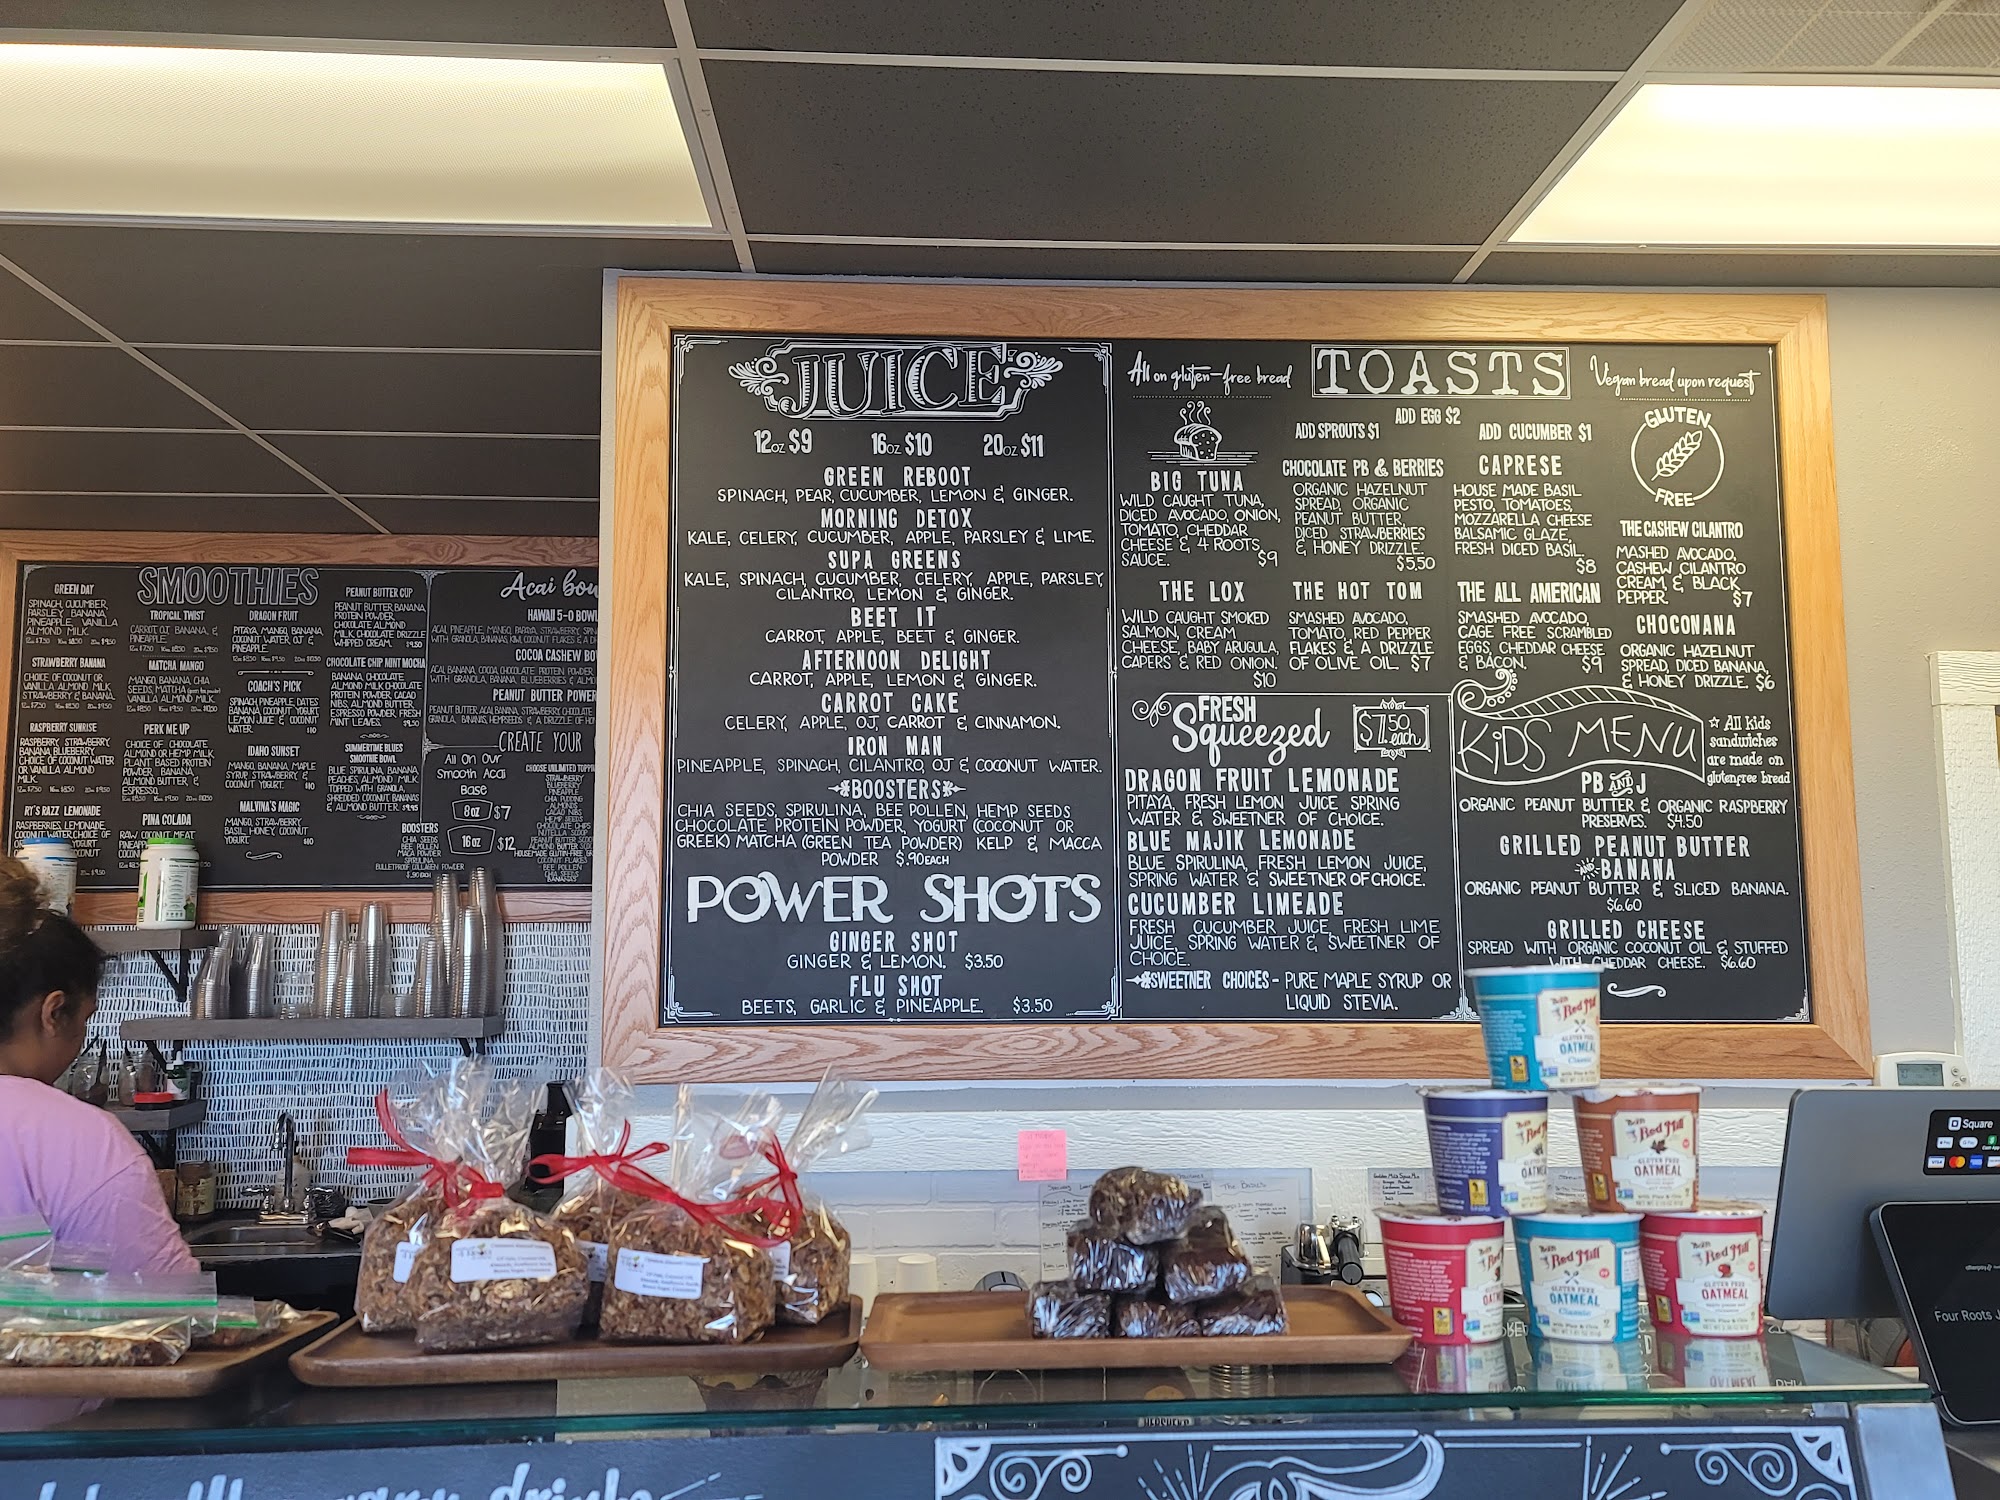 JUICE
12oz $9 16oz $10 20oz $11
GREEN REBOOT
SPINACH, PEAR, CUCUMBER, LEMON & GINGER.
MORNING DETOX
KALE, CELERY, CUCUMBER, APPLE, PARSLEY & LIME.
SUPA GREENS
KALE, SPINACH, CUCUMBER, CELERY, APPLE, PARSLEY,
CILANTRO, LEMON & GINGER.
BEET IT
CARROT, APPLE, BEET & GINGER.
AFTERNOON DELIGHT
CARROT, APPLE, LEMON & GINGER.
CARROT CAKE
CELERY, APPLE, OJ, CARROT & CINNAMON.
IRON MAN
PINEAPPLE, SPINACH, CILANTRO, OJ & COCONUT WATER.
BOOSTERS
CHIA SEEDS, SPIRULINA, BEE POLLEN, HEMP SEEDS
CHOCOLATE PROTEIN POWDER, YOGURT (COCONUT OR
GREEK) MATCHA (GREEN TEA POWDER) KELP & MACCA
POWDER $.90 EACH
POWER SHOTS
GINGER SHOT
GINGER & LEMON. $3.50
FLU SHOT
BEETS, GARLIC & PINEAPPLE. $3.50
All on gluten-free bread
TOASTS
Vegan bread upon request
ADD SPROUTS $1
ADD EGG $2
ADD CUCUMBER $1
GLUTEN
FREE
BIG TUNA
WILD CAUGHT TUNA,
DICED AVOCADO, ONION,
TOMATO, CHEDDAR
CHEESE & 4 ROOTS
SAUCE. $9
CHOCOLATE PB & BERRIES
ORGANIC HAZELNUT
SPREAD, ORGANIC
PEANUT BUTTER,
DICED STRAWBERRIES
& HONEY DRIZZLE.
$5.50
CAPRESE
HOUSE MADE BASIL
PESTO, TOMATOES,
MOZZARELLA CHEESE
BALSAMIC GLAZE,
FRESH DICED BASIL.
$8
THE CASHEW CILANTRO
MASHED AVOCADO,
CASHEW CILANTRO
CREAM, & BLACK
PEPPER. $7
THE LOX
WILD CAUGHT SMOKED
SALMON, CREAM
CHEESE, BABY ARUGULA,
CAPERS & RED ONION.
$10
THE HOT TOM
SMASHED AVOCADO,
TOMATO, RED PEPPER
FLAKES & A DRIZZLE
OF OLIVE OIL. $7
THE ALL AMERICAN
SMASHED AVOCADO,
CAGE FREE SCRAMBLED
EGGS, CHEDDAR CHEESE
& BACON. $9
CHOCONANA
ORGANIC HAZELNUT
SPREAD, DICED BANANA,
& HONEY DRIZZLE. $6
FRESH
Squeezed
$7.50
each
DRAGON FRUIT LEMONADE
PITAYA, FRESH LEMON JUICE SPRING
WATER & SWEETNER OF CHOICE.
BLUE MAJIK LEMONADE
BLUE SPIRULINA, FRESH LEMON JUICE,
SPRING WATER & SWEETNER OF CHOICE.
CUCUMBER LIMEADE
FRESH CUCUMBER JUICE, FRESH LIME
JUICE, SPRING WATER & SWEETNER OF
CHOICE.
SWEETNER CHOICES - PURE MAPLE SYRUP OR
LIQUID STEVIA.
KiDS MENU
☆ All kids
sandwiches
are made on
gluten free bread
PB AND J
ORGANIC PEANUT BUTTER & ORGANIC RASPBERRY
PRESERVES. $4.50
GRILLED PEANUT BUTTER
AND BANANA
ORGANIC PEANUT BUTTER & SLICED BANANA.
$6.60
GRILLED CHEESE
SPREAD WITH ORGANIC COCONUT OIL & STUFFED
WITH CHEDDAR CHEESE. $6.60
SMOOTHIES
GREEN DAY
SPINACH, CUCUMBER,
PARSLEY, BANANA,
PINEAPPLE, VANILLA
ALMOND MILK.
STRAWBERRY BANANA
CHOICE OF COCONUT OR
VANILLA ALMOND MILK
STRAWBERRY & BANANA
RASPBERRY SUNRISE
RASPBERRY, STRAWBERRY
BANANA, BLUEBERRY
CHOICE OF COCONUT WATER
OR VANILLA ALMOND
MILK.
RY'S RAZZ LEMONADE
RASPBERRIES, LEMONADE,
TROPICAL TWIST
CARROT, OJ, BANANA, &
PINEAPPLE.
MATCHA MANGO
MANGO, BANANA, CHIA
SEEDS, MATCHA
VANILLA ALMOND MILK
PERK ME UP
CHOICE OF CHOCOLATE
ALMOND OR HEMP MILK
PLANT BASED PROTEIN
POWDER, BANANA,
ALMOND BUTTER &
ESPRESSO.
PINA COLADA
RAW COCONUT MEAT
DRAGON FRUIT
PITAYA, MANGO, BANANA,
COCONUT WATER, OJ &
PINEAPPLE
COACH'S PICK
SPINACH, PINEAPPLE, DATES
BANANA, COCONUT YOGURT,
LEMON JUICE & COCONUT
WATER. $10
IDAHO SUNSET
MANGO, BANANA, MAPLE
SYRUP, STRAWBERRY &
COCONUT YOGURT. $10
MALVINA'S MAGIC
MANGO, STRAWBERRY
BASIL, HONEY, COCONUT
YOGURT. $10
PEANUT BUTTER CUP
PEANUT BUTTER, BANANA,
PROTEIN POWDER,
CHOCOLATE ALMOND
MILK, CHOCOLATE DRIZZLE
WHIPPED CREAM. $9.50
CHOCOLATE CHIP MINT MOCHA
BANANA, CHOCOLATE
ALMOND MILK, CHOCOLATE
PROTEIN POWDER, CACAO
NIBS, ALMOND BUTTER,
ESPRESSO POWDER, FRESH
MINT LEAVES. $9.50
SUMMERTIME BLUES
SMOOTHIE BOWL
BLUE SPIRULINA, BANANA,
PEACHES, ALMOND MILK
TOPPED WITH GRANOLA,
SHREDDED COCONUT, BANANAS
& ALMOND BUTTER.
Acai bow
HAWAII 5-0 BOWL
COCOA CASHEW BO
PEANUT BUTTER POWER
CREATE YOUR
All On Our
Smooth Acai
Base
8oz $7
16oz $12
BOOSTERS
CHIA SEEDS
BEE POLLEN
MACA POWDER
SPIRULINA
Bob's Red Mill
GLUTEN FREE
OATMEAL
Classic
Bob's Red Mill
GLUTEN FREE
OATMEAL
Bob's Red Mill
GLUTEN FREE
OATMEAL
Bob's Red Mill
GLUTEN FREE
OATMEAL
Classic
Bob's Red Mill
GLUTEN FREE
OATMEAL
Square
VISA
Four Roots J